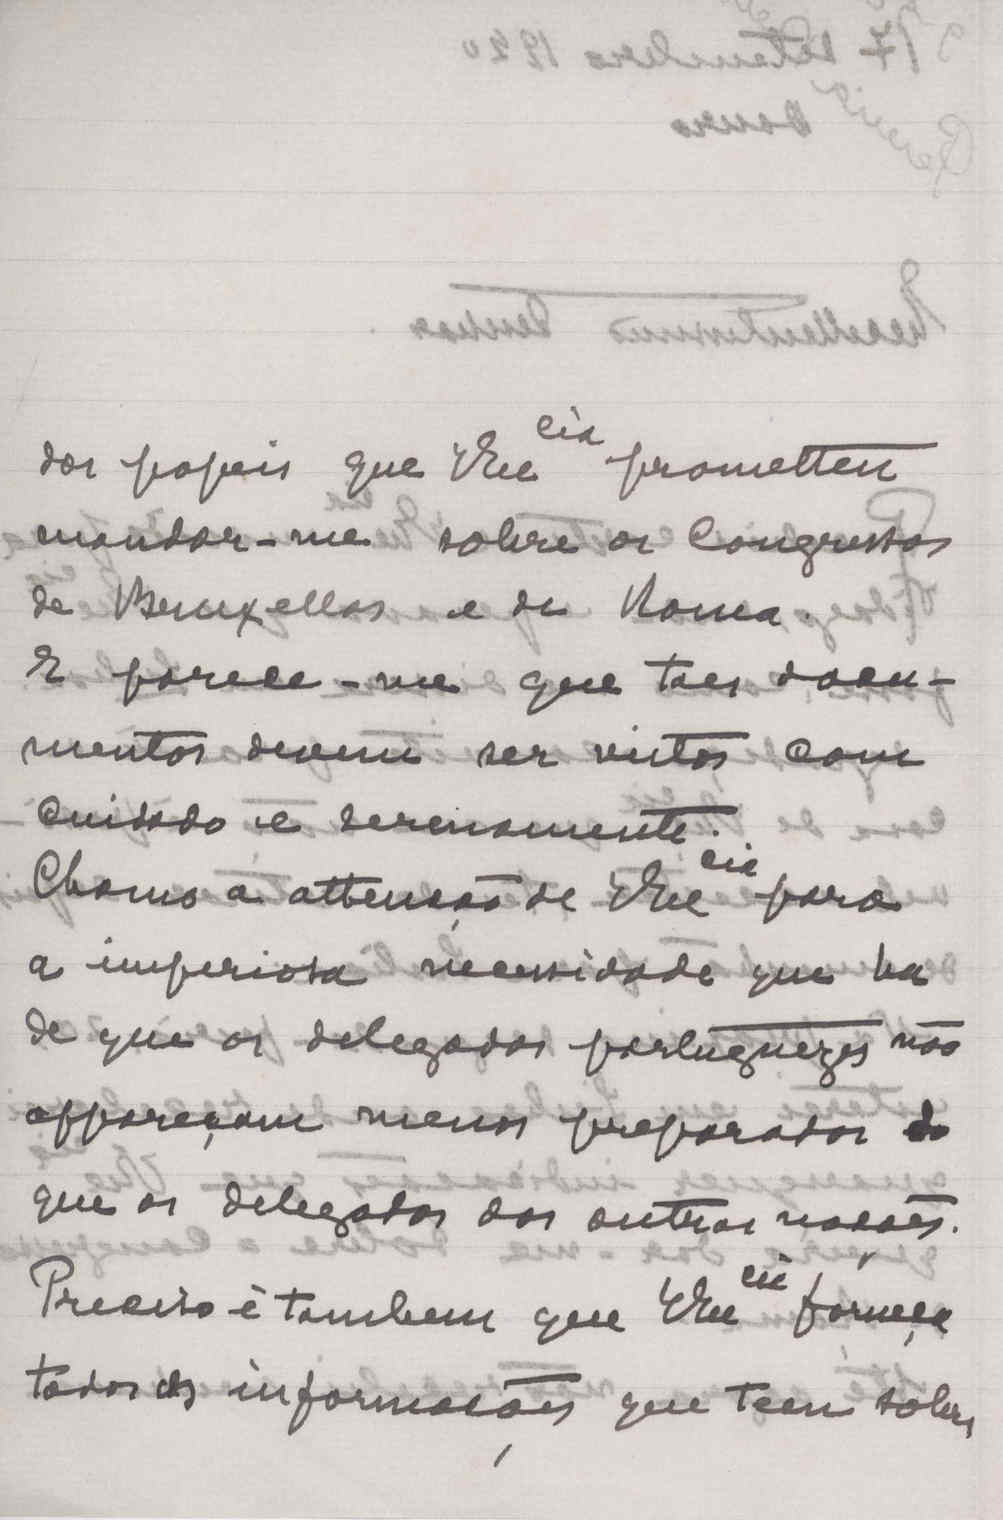 dos papeis que VExcia prometteu
mandar-me sobre os Congressos
de Bruxellas e de Roma.
E parece-me que taes docu-
mentos devem ser vistos com
cuidado e serenamente.
Chamo a attenção de VExcia para
a imperiosa necessidade que ha
de que os delegados portuguezes não
appareçam menos preparados do
que os delegados das outras nações.
Preciso é tambem que VExcia forneça
todas as informações que tem sobre